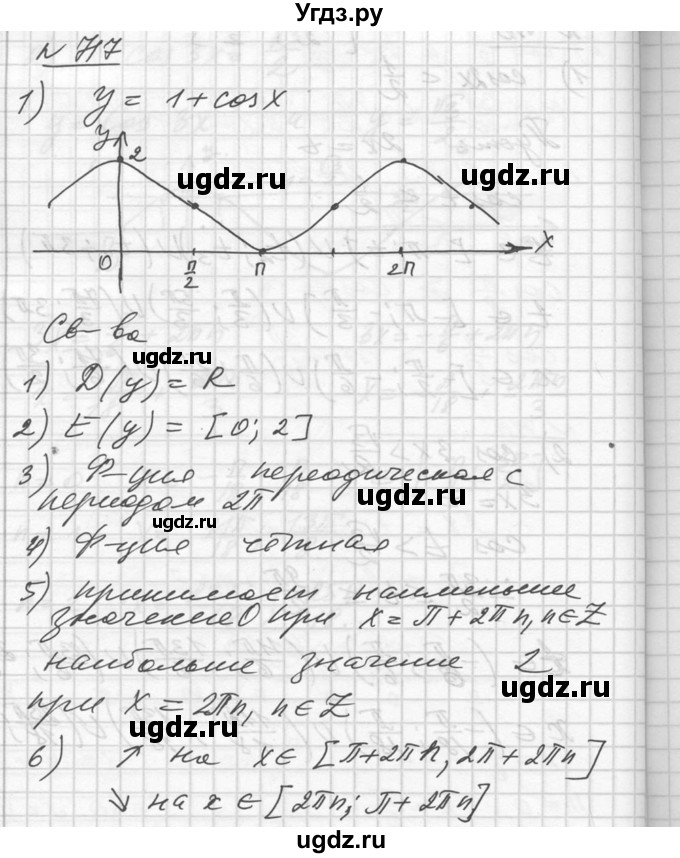 Угдз.ру
N 717
1) y = 1 + cos x
y
2
ugdz.ru
ugdz.ru
0 π/2 π 2π x
Св-ва
ugdz.ru
1) D(y) = R
2) E(y) = [0; 2]
3) Ф-ция переодическая с
периодом 2π
ugdz.ru
ugdz.ru
4) Ф-ция чётная
5) принимает наименьшее
значение 0 при x = π + 2πn, n ∈ Z
ugdz.ru
наибольше значение 2
ugdz.ru
при x = 2πn, n ∈ Z
ugdz.ru
6) ↗ на x ∈ [π + 2πn, 2π + 2πn]
↘ на x ∈ [2πn; π + 2πn]
ugdz.ru